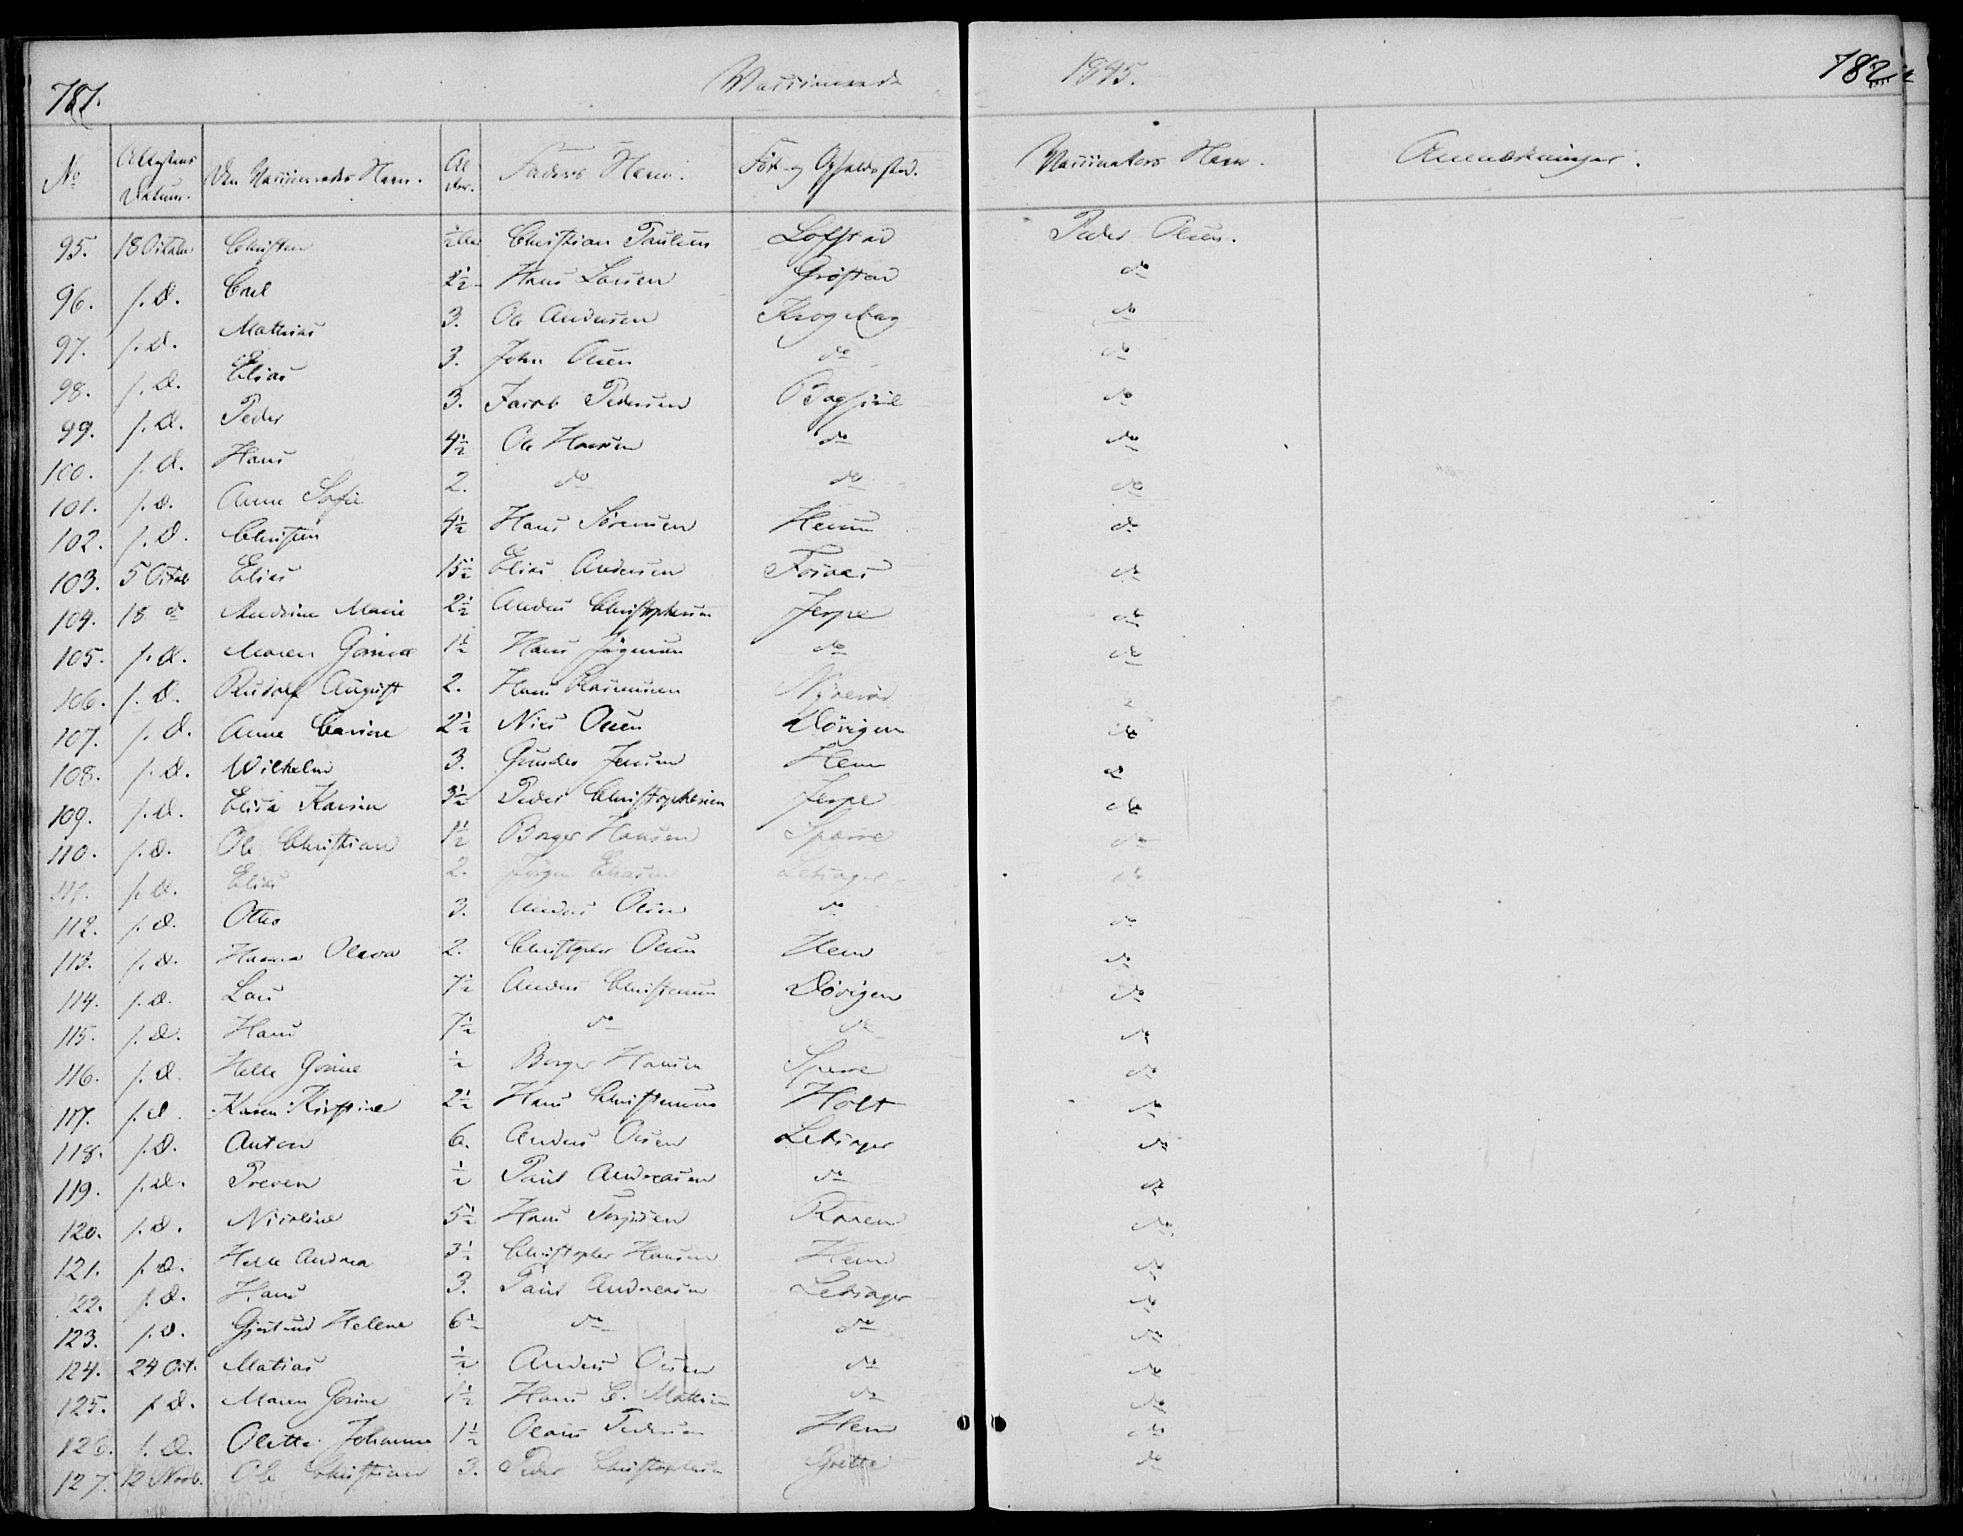 781.
Vaccinerede
1845.
782
No
Attestens Datum.
Den Vaccineredes Navn.
Alder.
Faders Navn.
Föde- og Opholdssted.
Vaccinators Navn.
Anmærkninger.
95. 18 Octobr Christen ½ Christian Paulsen Lofstad Peder Olsen.
96. s. D. Carl 2½ Hans Larsen Gröstad do
97. s. D. Mathias 3. Ole Andersen Krogsbag do
98. s. D. Elias 3. John Olsen do do
99. s. D. Peder 3. Jacob Pedersen do
100. s. D. Hans 4½ Ole Hansen do do
101. s. D. Anne Sofie 2. do do do
102. s. D. Christen 4½ Hans Sörensen Heum do
103. 5 Octob Elias 15½ Elias Andersen do
104. 18 do Andrine Marie 2½ Anders Christophersen Jespe do
105. s. D. Maren Gorine 1½ Hans do do
106. s. D. Rudolf August 2. Hans Rasmussen
107. s. D. Anne Carine 2½ Niels Olsen Dövigen do
108. s. D. Wilhelm 3. Gunder Jensen Hem do
109. s. D. Elisa Karine 3½ Peder Christophersen Jespe do
110. s. D. Ole Christian 1½ Borger Hansen Sparre do
111. s. D. Elias 2. Jörgen Eliasen do
112. s. D. Otto 3. Anders Olsen do do
113. s. D. Hanna Olava 2. Christopher Olsen Hem do
114. s. D. Lars 7½ Anders Christensen Dövigen do
115. s. D. Hans 7½ do do do
116. s. D. Helle Gorine ½ Borger Hansen do
117. s. D. Karen Kirstine 2½ Hans Christensen Holt do
118. s. D. Anton 6. Anders Olsen do
119. s. D. Preven ½ Paul Andreasen do do
120. s. D. Nicoline 5½ Hans Torgersen do
121. s. D. Helle Andrea 3½ Christopher Hansen Hem do
122. s. D. Hans 3. Paul Andreasen do
123. s. D. Gjertrud Helene 6½ do do do
124. 24 Oct. Matias ½ Anders Olsen do do
125. s. D. Maren Gorine 1½ Hans C. Mathisen do do
126. s. D. Olette Johanne 1½ Olaus Pedersen Hem do
127. 12 Novb. Ole Christian 3. Peder Christophersen do